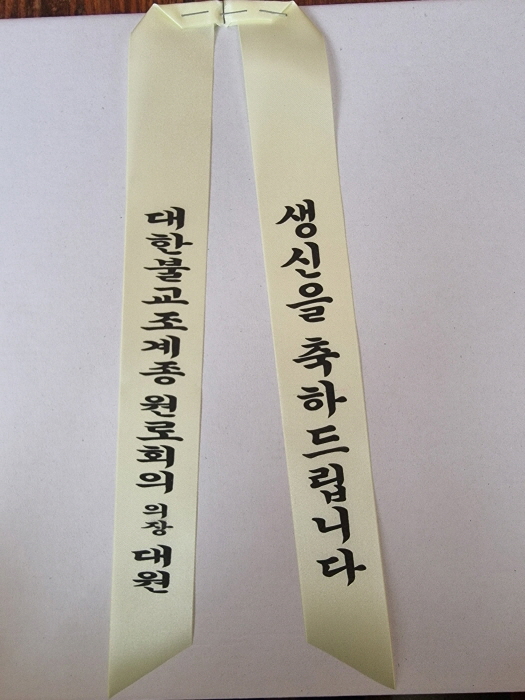 생신을 축하드립니다
대한불교조계종 원로회의 의장 대원